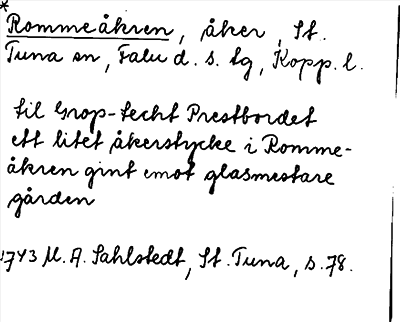 * Rommeåkren, åker, St.
Tuna sn, Falu d. s. tg, Kopp. l.
til Grop-techt Prestbordet
ett litet åkerstycke i Romme-
åkren gint emot glasmestare
gården
1743 M. A. Sahlstedt, St. Tuna, s. 78.